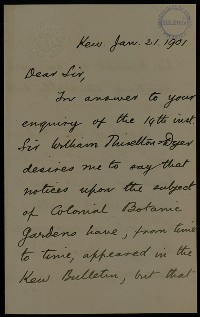 Kew Jan. 21. 1901
Dear Sir,
In answer to your
enquiry of the 19th inst.
Sir William Thiselton-Dyer
desires me to say that
notices upon the subject
of Colonial Botanic
Gardens have, from time
to time, appeared in the
Kew Bulletin, but that